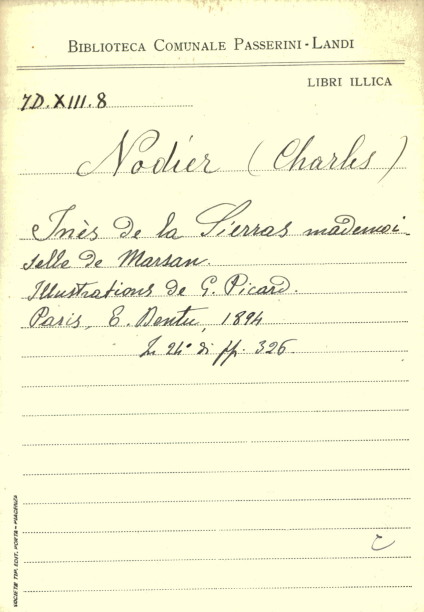 BIBLIOTECA COMUNALE PASSERINI-LANDI
LIBRI ILLICA
7D.XIII.8
Nodier (Charles)
Inès de la Sierras mademoi-
selle de Marsan.
Illustrations de G. Picard.
Paris, E. Dentu, 1894
In 24° di pp. 326
SOCIETÀ TIP. EDIT. PORTA - PIACENZA